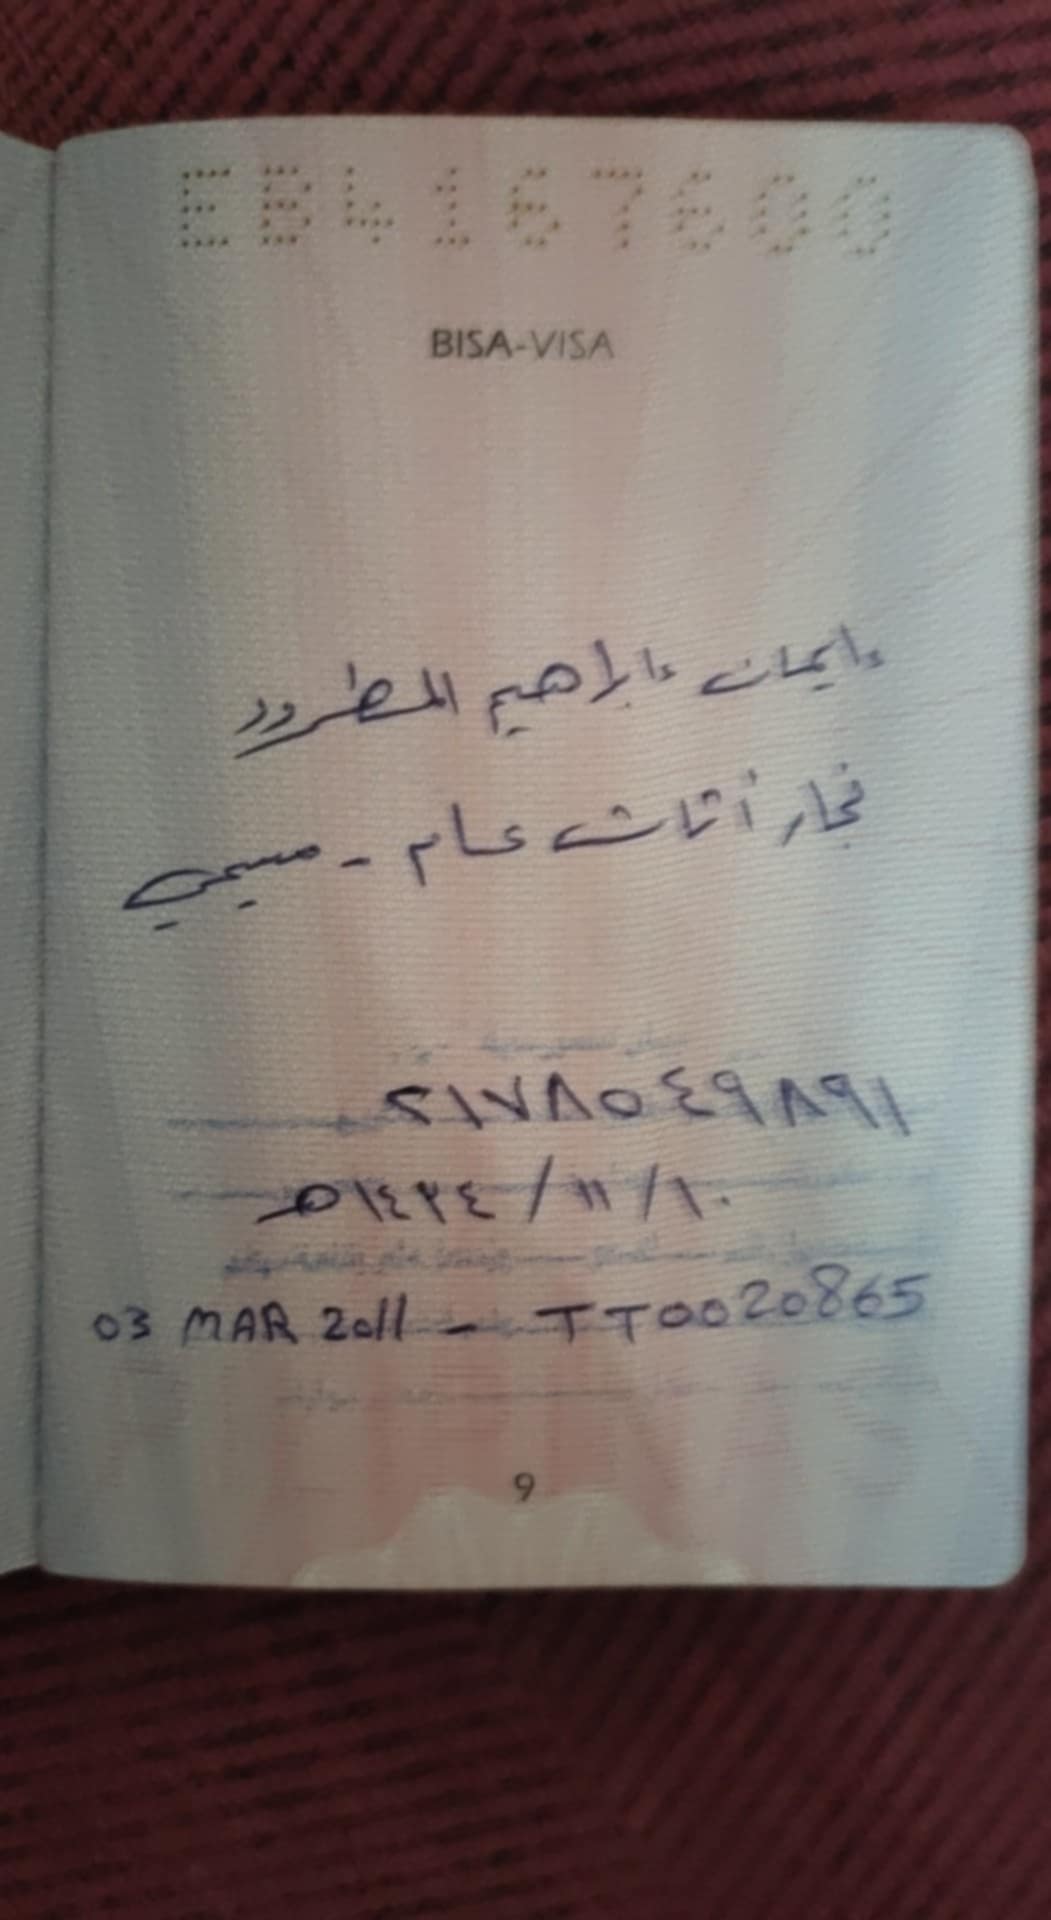 EB4167600
BISA-VISA
ايمان ابراهيم المطرود
نجار أثاث عام - مسيحي
١٩٨٩٤٥٨٧١٢
١٠/١١/١٤٣٤هـ
03 MAR 2011 - TT0020865
9